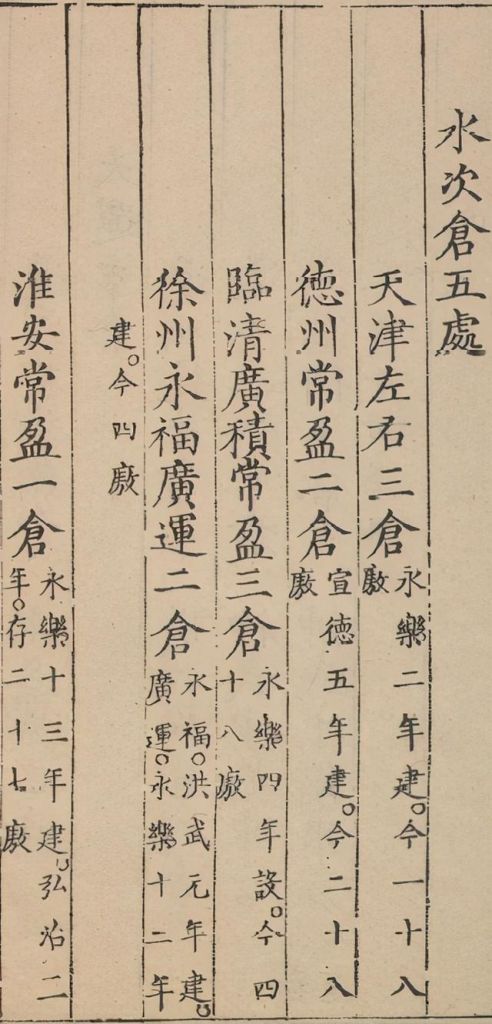 水次倉五處
天津左右三倉永樂二年建。今一十八廒
德州常盈二倉宣德五年建。今二十八廒
臨清廣積常盈三倉永樂四年設。今四十八廒
徐州永福廣運二倉永福。洪武元年建。廣運。永樂十二年
建。今四廒
淮安常盈一倉永樂十三年建。弘治二年。存二十七廒